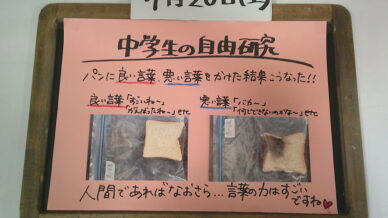 中学生の自由研究
パンに良い言葉、悪い言葉をかけた結果こうなった!!
良い言葉「すごいね〜」
「がんばったね〜」etc
悪い言葉「バカー」
「何もできないのかな〜」etc
人間であればなおさら…言葉の力はすごい
ですね